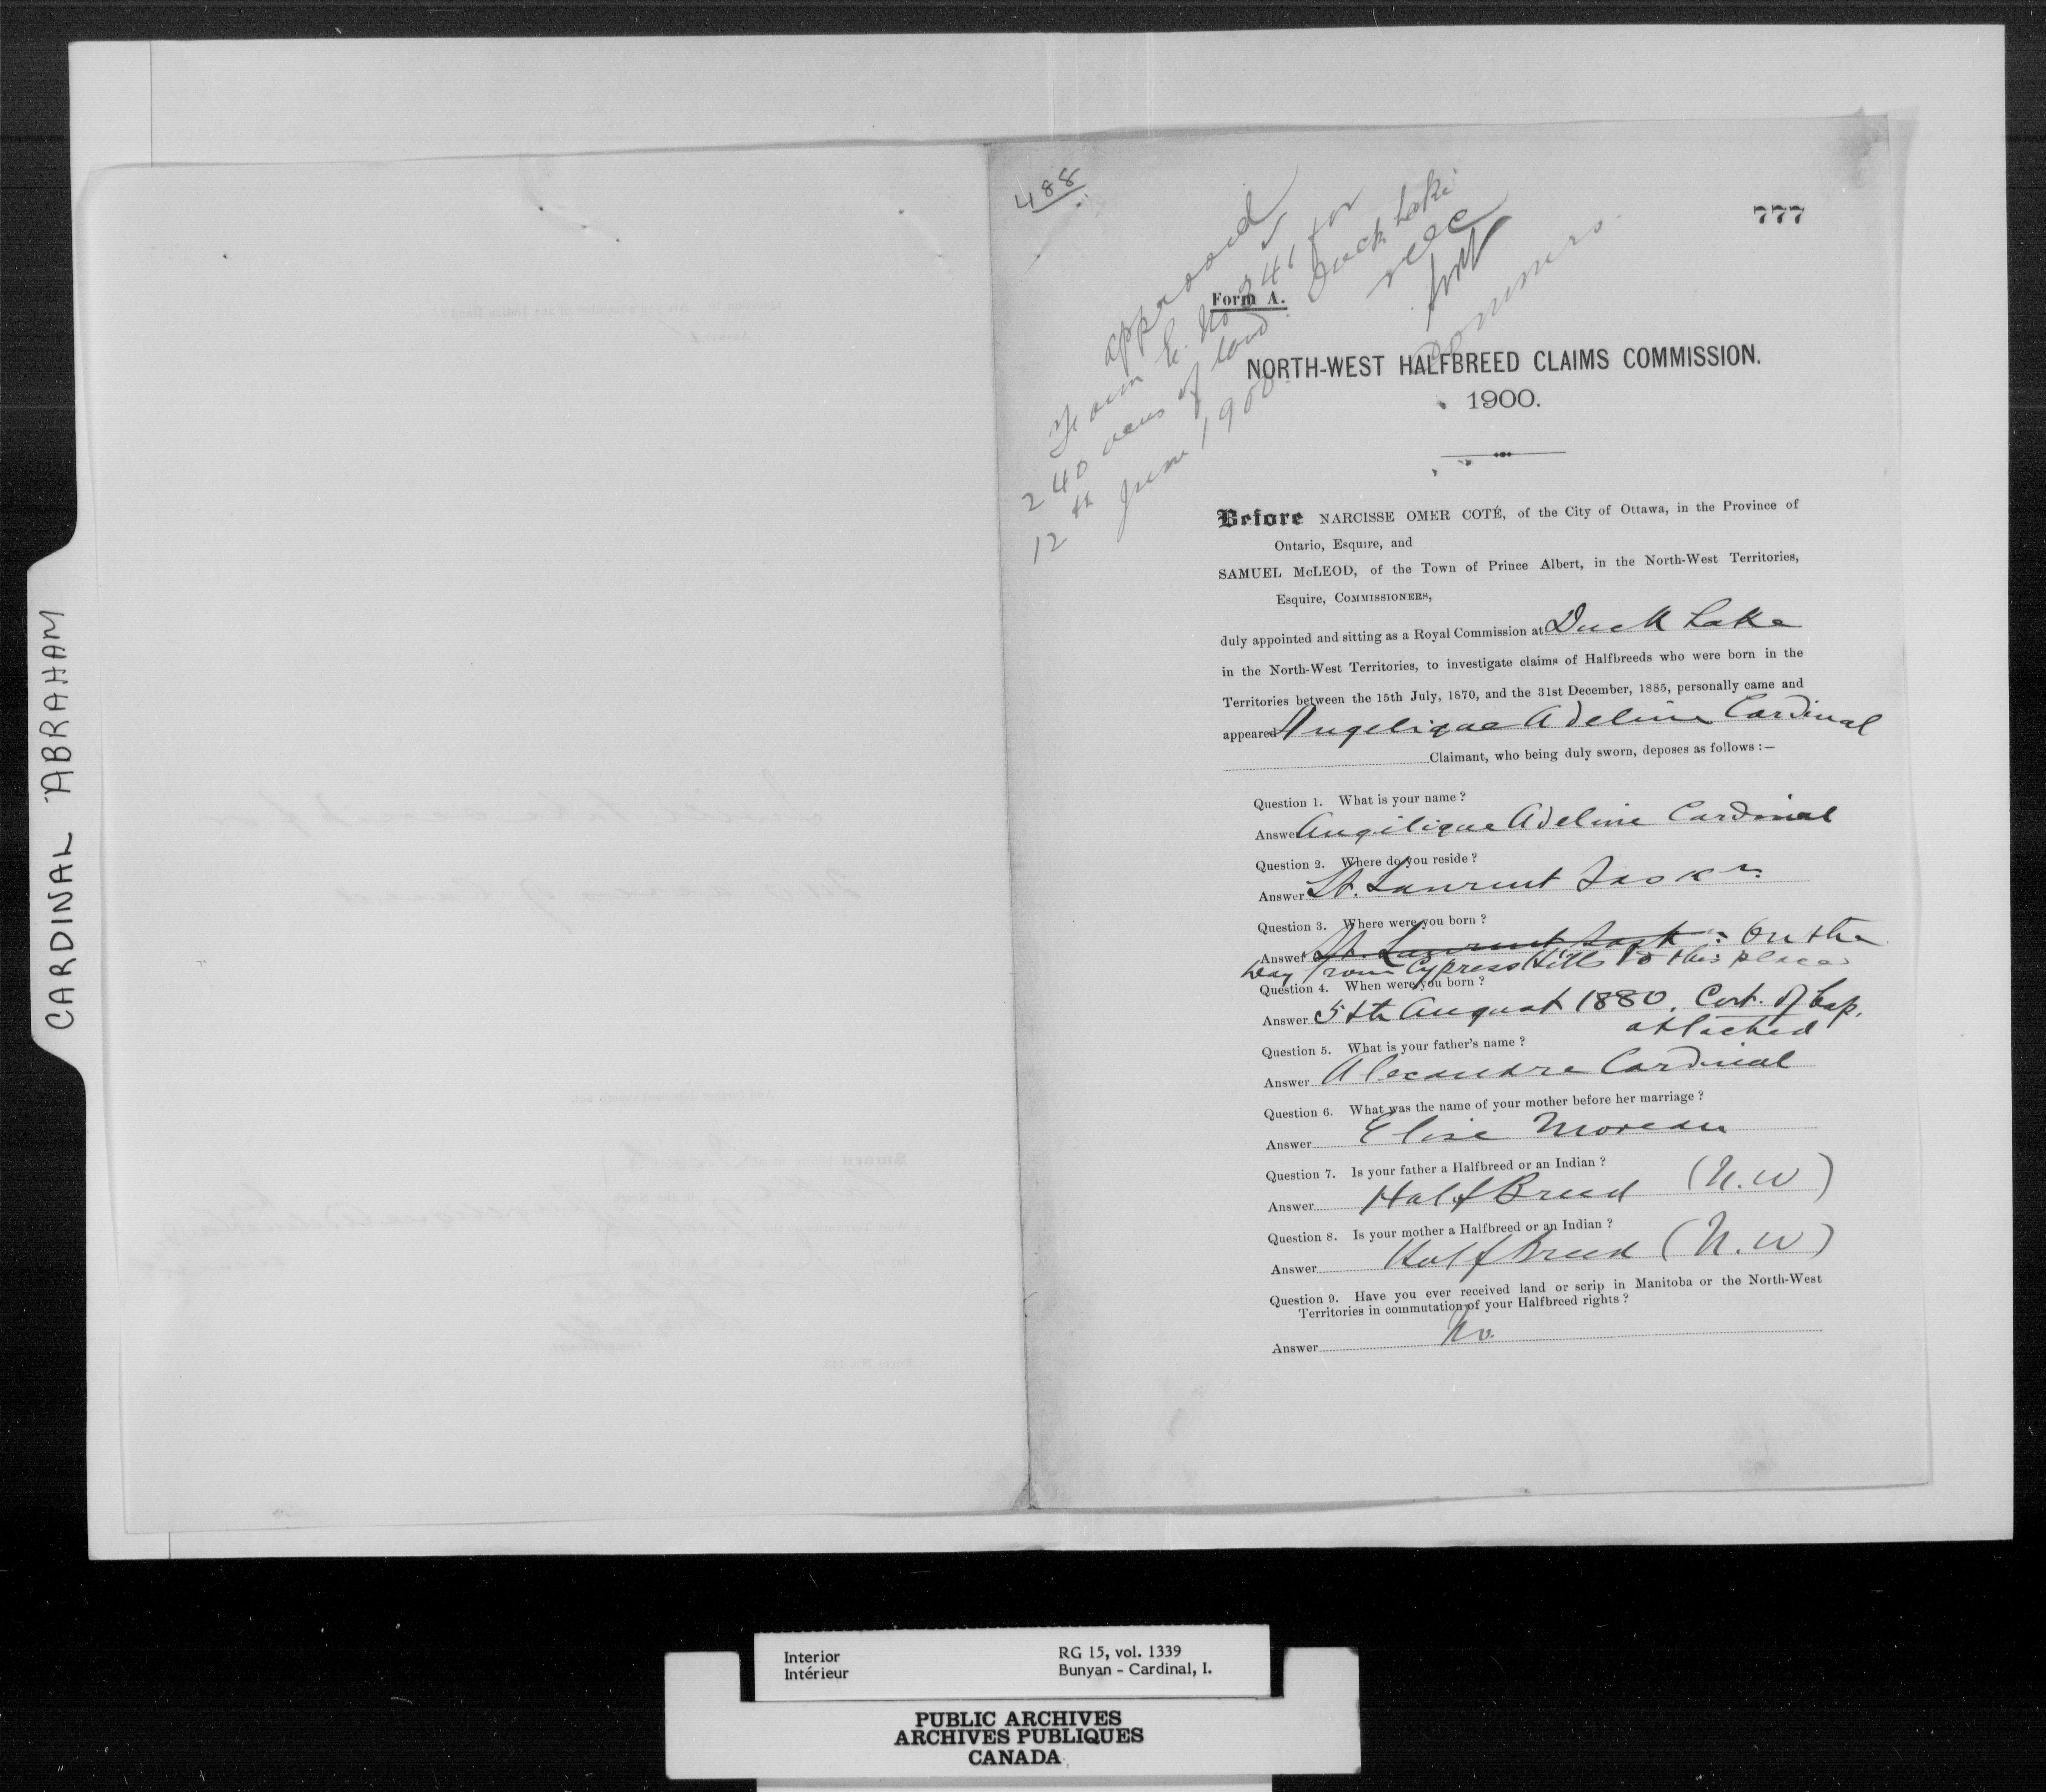 CARDINAL ABRAHAM
488
777
approved
Form E. No 241 for
240 acres of land Duck Lake
12th June 1900
NOC
Commrs.
Form A.
NORTH-WEST HALFBREED CLAIMS COMMISSION.
1900.
Before NARCISSE OMER COTÉ, of the City of Ottawa, in the Province of
Ontario, Esquire, and
SAMUEL McLEOD, of the Town of Prince Albert, in the North-West Territories,
Esquire, COMMISSIONERS,
duly appointed and sitting as a Royal Commission at Duck Lake
in the North-West Territories, to investigate claims of Halfbreeds who were born in the
Territories between the 15th July, 1870, and the 31st December, 1885, personally came and
appeared Angelique Adeline Cardinal
Claimant, who being duly sworn, deposes as follows :—
Question 1. What is your name ?
Answer Angelique Adeline Cardinal
Question 2. Where do you reside ?
Answer St. Laurent Sask n.
Question 3. Where were you born ?
Answer St. Laurent Sask n. On the
way from Cypress Hills to this place
Question 4. When were you born ?
Answer 5th August 1880. Cert. of bap.
attached
Question 5. What is your father's name ?
Answer Alexandre Cardinal
Question 6. What was the name of your mother before her marriage ?
Answer Elise Moreau
Question 7. Is your father a Halfbreed or an Indian ?
Answer Half Breed (N.W)
Question 8. Is your mother a Halfbreed or an Indian ?
Answer Half Breed (N.W)
Question 9. Have you ever received land or scrip in Manitoba or the North-West
Territories in commutation of your Halfbreed rights ?
Answer No.
Interior
Intérieur
RG 15, vol. 1339
Bunyan - Cardinal, I.
PUBLIC ARCHIVES
ARCHIVES PUBLIQUES
CANADA